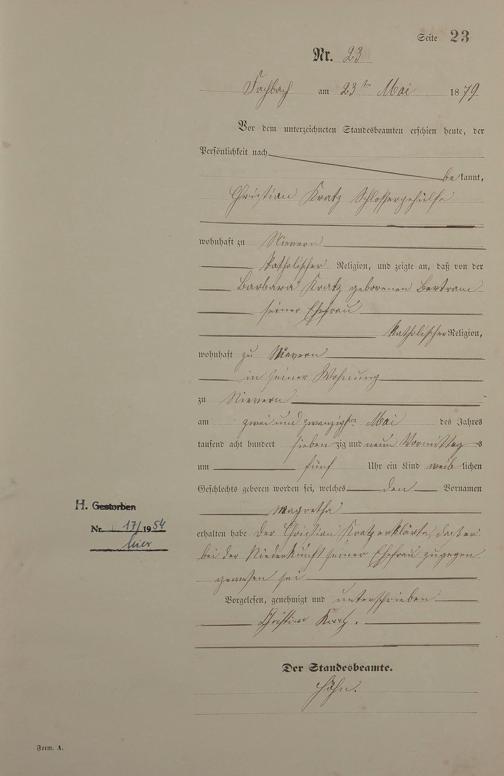 Seite 23
Nr. 23
Fachbach am 23ten Mai 1879.
Vor dem unterzeichneten Standesbeamten erschien heute, der
Persönlichkeit nach
bekannt,
Christian Kratz Schlossergehülfe
wohnhaft zu Nievern
katholischer Religion, und zeigte an, daß von der
Barbara Kratz geborenen Bertram
seiner Ehefrau
katholischer Religion,
wohnhaft zu Nievern
in seiner Wohnung
zu Nievern
am zwei und zwanzigsten Mai des Jahres
tausend acht hundert siebenzig und neun Vormittags
um fünf Uhr ein Kind weiblichen
Geschlechts geboren worden sei, welches den Vornamen
Magretha
erhalten habe. Der Christian Kratz erklärte, daß er
bei der Niederkunft seiner Ehefrau zugegen
gewesen sei
Vorgelesen, genehmigt und unterschrieben
Christian Kratz.
Der Standesbeamte.
Hahn.
H. Gestorben
Nr. 17/1954
hier
Form. A.